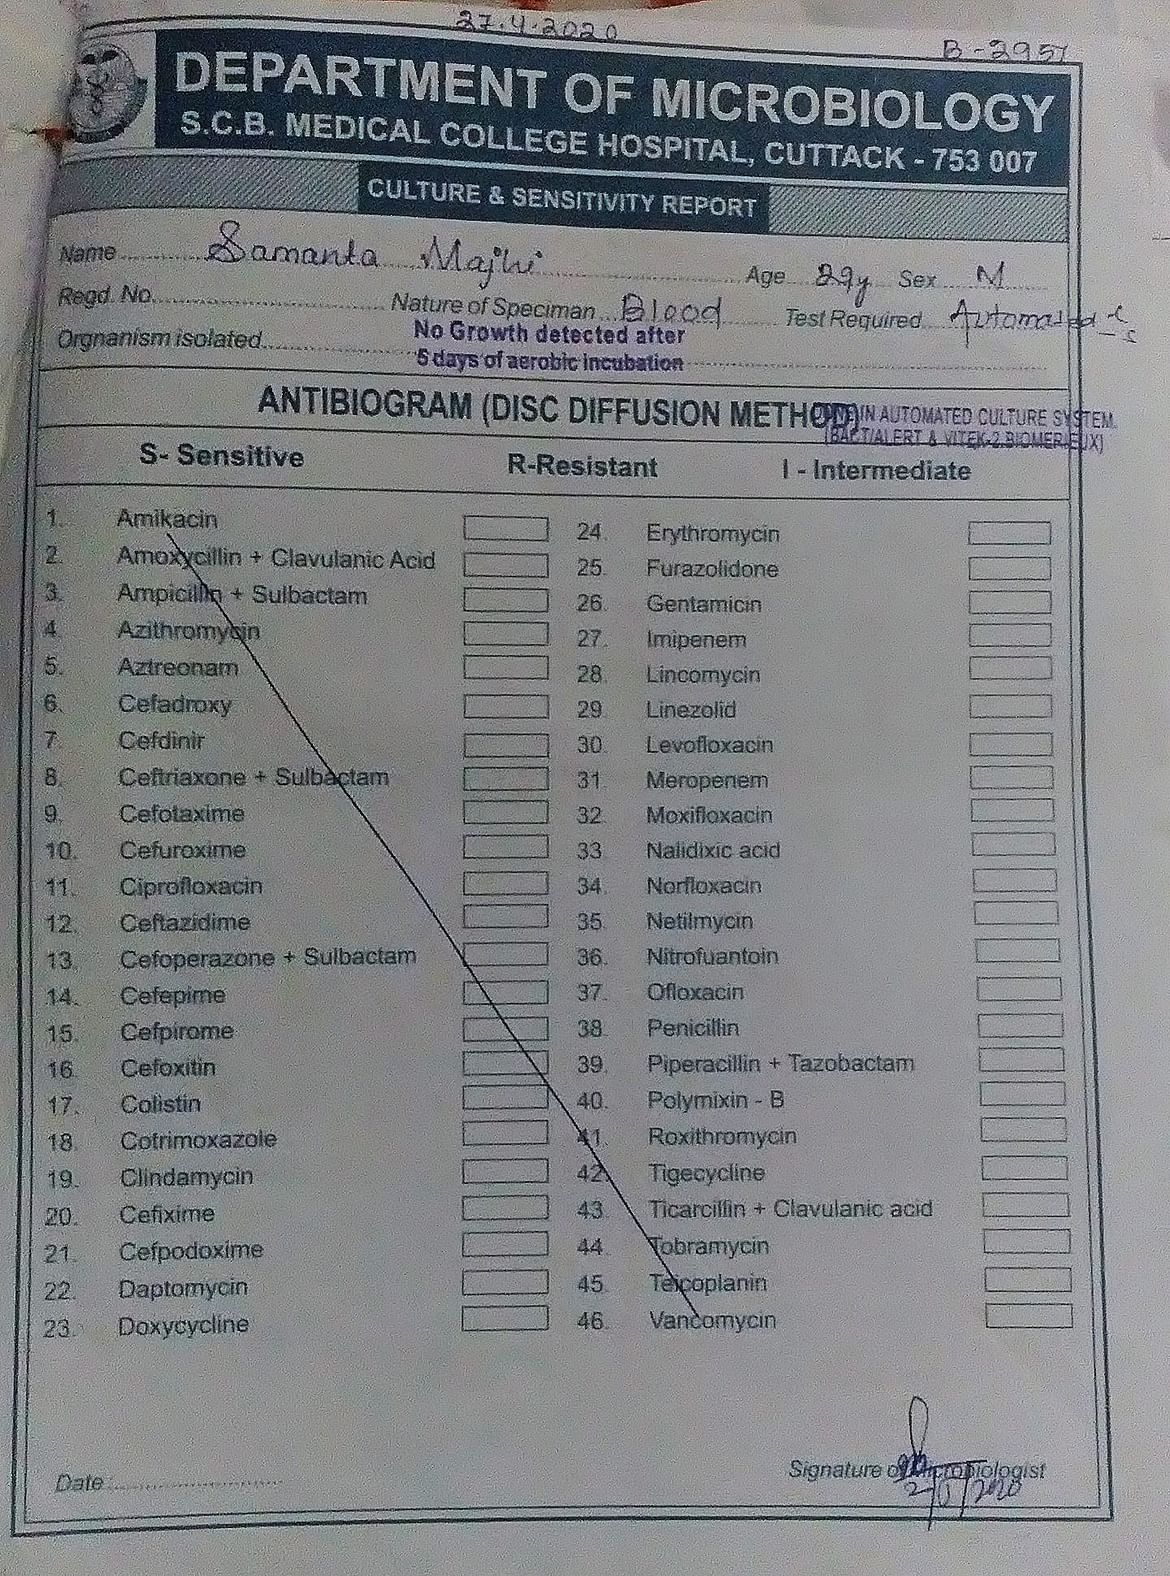 27.4.2020
B-2957
DEPARTMENT OF MICROBIOLOGY
S.C.B. MEDICAL COLLEGE HOSPITAL, CUTTACK - 753 007
CULTURE & SENSITIVITY REPORT
Name Samanta Majhi Age 29y Sex M
Regd. No. Nature of Speciman Blood Test Required Automated c/s
Orgnanism isolated No Growth detected after
5 days of aerobic incubation
ANTIBIOGRAM (DISC DIFFUSION METHOD)
IN AUTOMATED CULTURE SYSTEM
(BACT/ALERT & VITEK-2 BIOMERIEUX)
S- Sensitive R-Resistant I - Intermediate
1. Amikacin 24. Erythromycin
2. Amoxycillin + Clavulanic Acid 25. Furazolidone
3. Ampicillin + Sulbactam 26. Gentamicin
4. Azithromycin 27. Imipenem
5. Aztreonam 28. Lincomycin
6. Cefadroxy 29. Linezolid
7. Cefdinir 30. Levofloxacin
8. Ceftriaxone + Sulbactam 31. Meropenem
9. Cefotaxime 32. Moxifloxacin
10. Cefuroxime 33. Nalidixic acid
11. Ciprofloxacin 34. Norfloxacin
12. Ceftazidime 35. Netilmycin
13. Cefoperazone + Sulbactam 36. Nitrofuantoin
14. Cefepime 37. Ofloxacin
15. Cefpirome 38. Penicillin
16. Cefoxitin 39. Piperacillin + Tazobactam
17. Colistin 40. Polymixin - B
18. Cotrimoxazole 41. Roxithromycin
19. Clindamycin 42. Tigecycline
20. Cefixime 43. Ticarcillin + Clavulanic acid
21. Cefpodoxime 44. Tobramycin
22. Daptomycin 45. Teicoplanin
23. Doxycycline 46. Vancomycin
Date Signature of Microbiologist